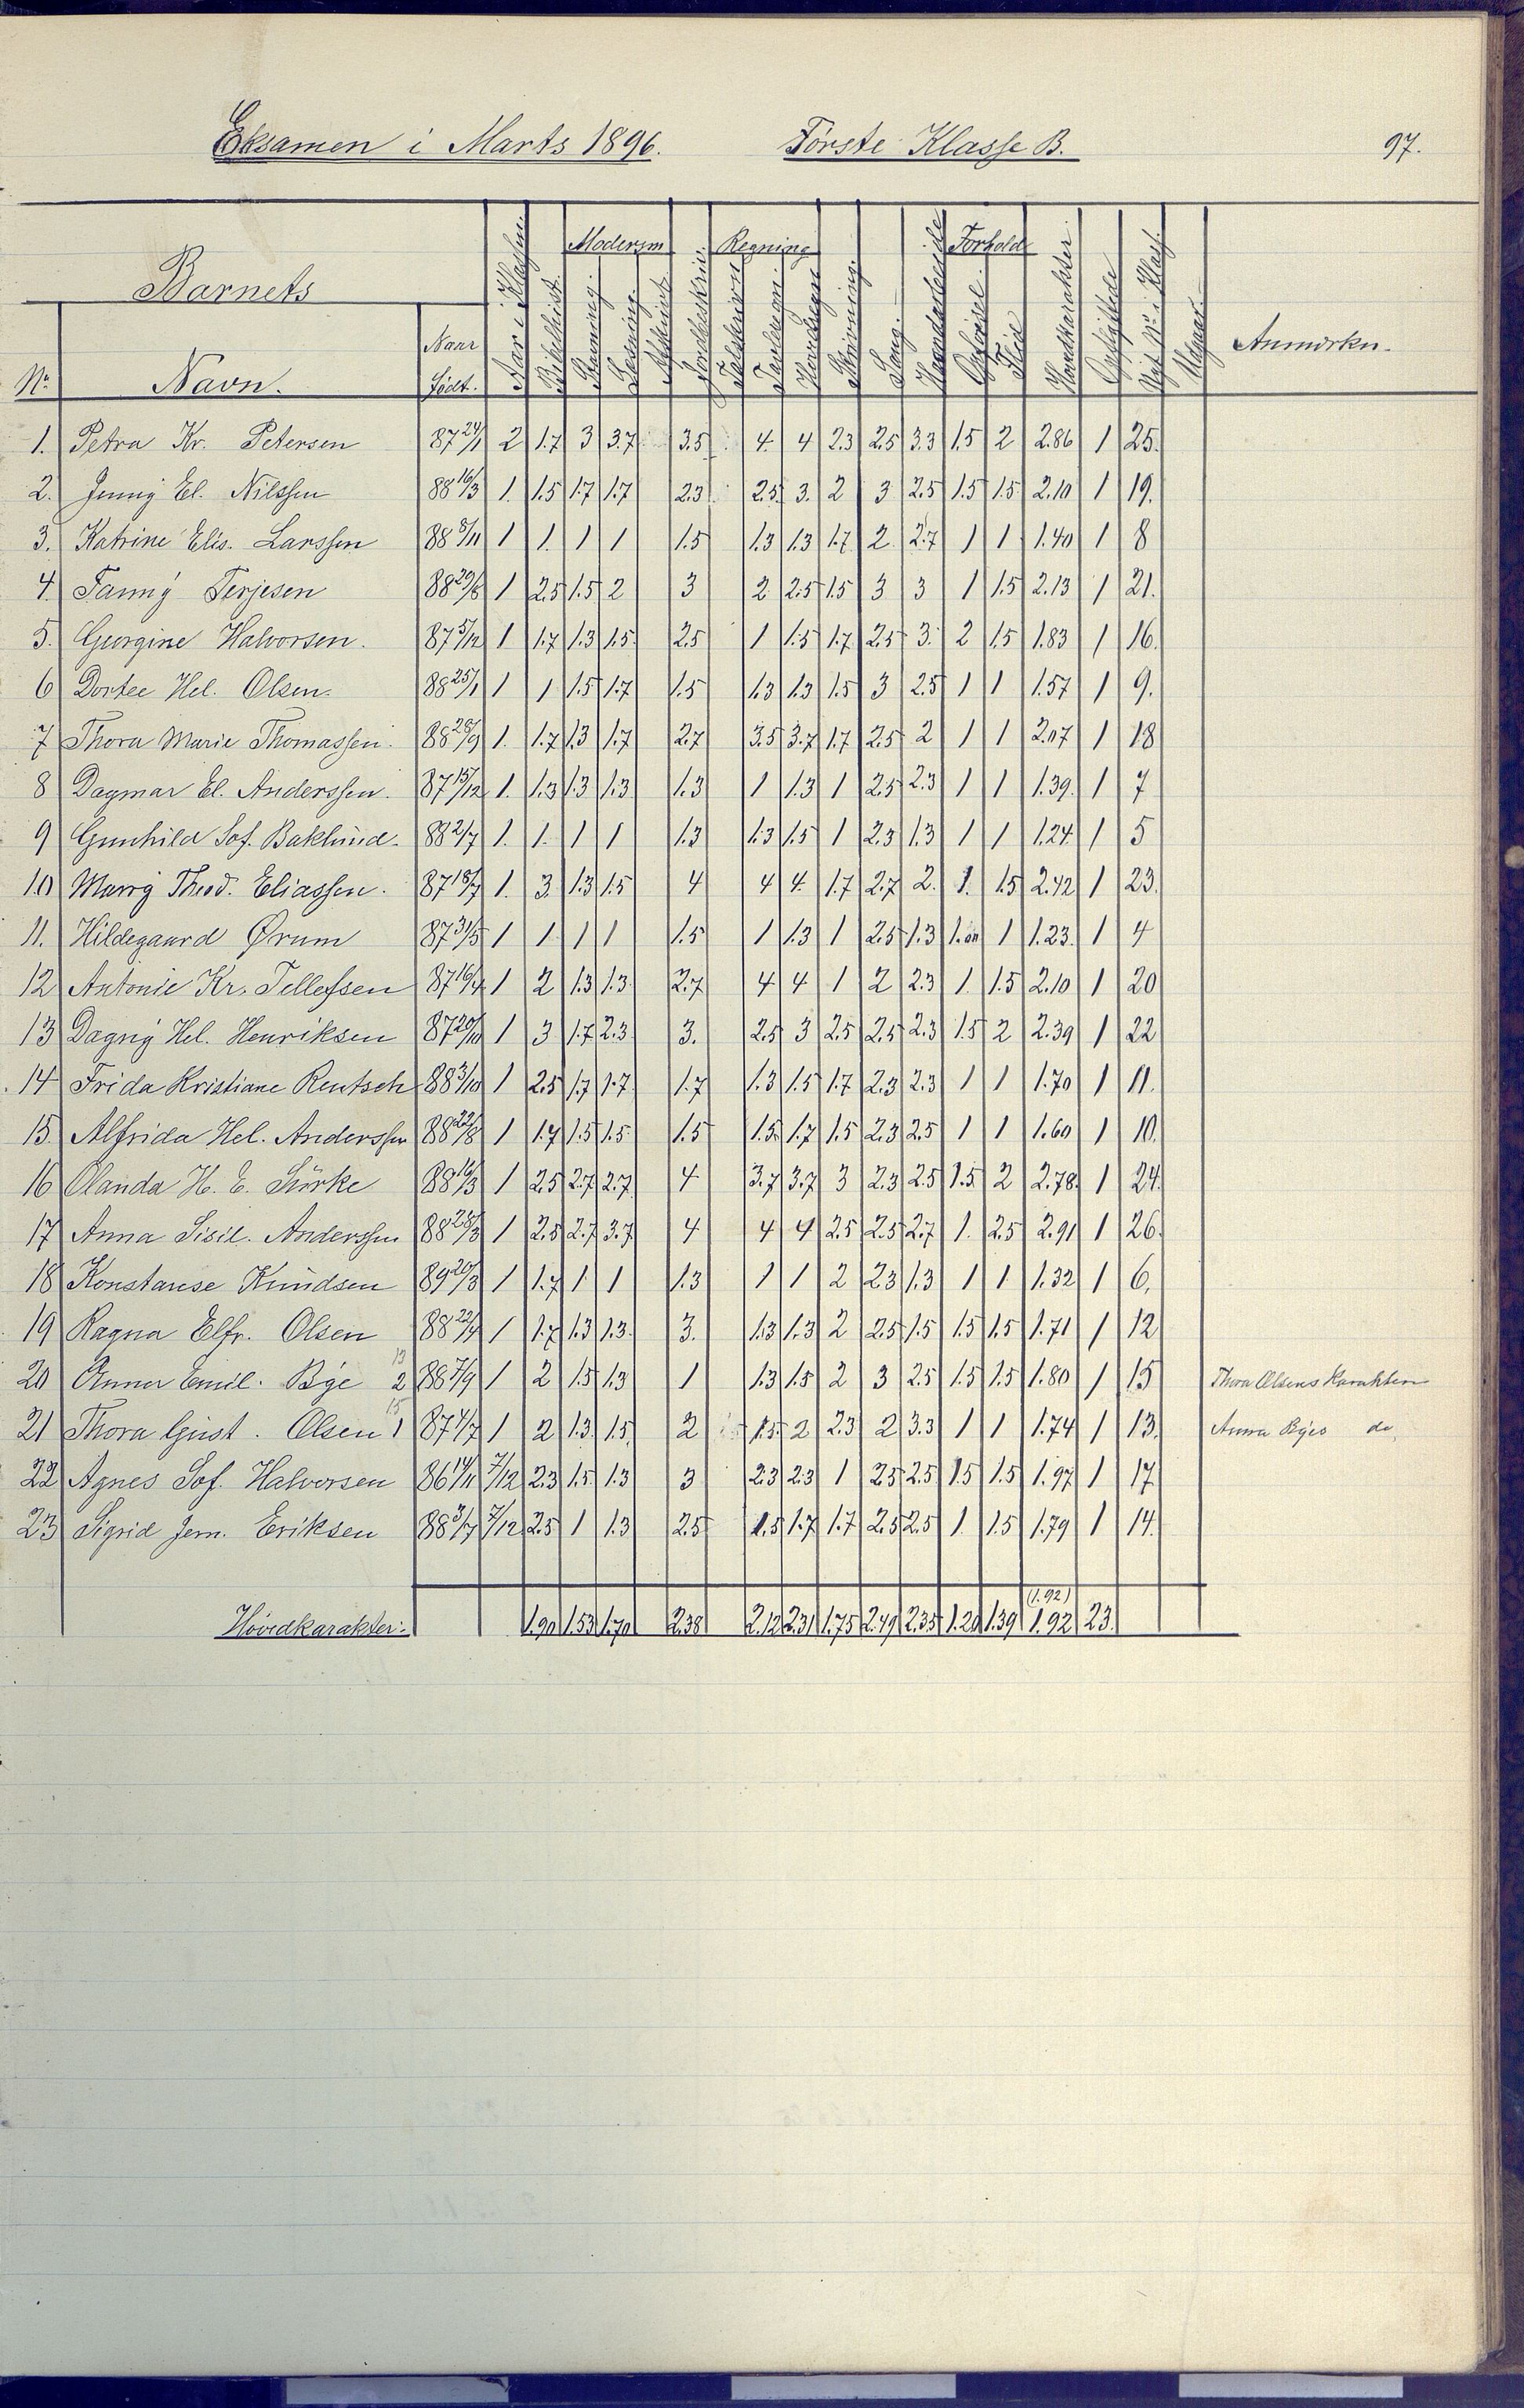 Eksamen i Marts 1896. Første Klasse B. 97.
Barnets
Modersm Regning Forhold
Aar i Klassen. Bibelhist. Lesning. Jordbeskriv. Tavleregn. Hovedregn. Skrivning. Sang. Haandarbeide Opførsel Flid Hovedkarakter. Opflyttede Nyt Nr i Klass. Udgaar. Anmerkn.
Nr. Navn. Naar Født.
1. Petra Kr. Petersen 87 24/1 2 1.7 3 3.7 3.5 4. 4 2.3 2.5 3.3 1.5 2 2.86 1 25.
2. Jenny El. Nilssen 88 16/3 1. 1.5 1.7 1.7 2.3 2.5. 3. 2 3 2.5 1.5 1.5 2.10 1 19.
3. Katrine Elis. Larssen 88 8/11 1 1. 1 1 1.5 1.3 1.3 1.7 2 2.7 1 1 1.40 1 8
4. Fanny Terjesen 88 29/6 1 2.5 1.5 2 3 2 2.5 1.5 3 3 1 1.5 2.13 1 21.
5. Georgine Halvorsen. 87 5/12 1 1.7 1.3 1.5 2.5 1 1.5 1.7 2.5 3. 2 1.5 1.83 1 16.
6 Dortee Hel. Olsen. 88 25/1 1 1 1.5 1.7 1.5 1.3 1.3 1.5 3 2.5 1 1 1.57 1 9.
7 Thora Marie Thomassen. 88 28/9 1. 1.7 1.3 1.7 2.7 3.5 3.7 1.7 2.5 2 1 1 2.07 1 18
8 Dagmar El. Anderssen. 87 15/12 1. 1.3 1.3 1.3 1.3 1 1.3 1 2.5 2.3 1 1 1.39. 1 7
9 Gunhild Sof. Baklund. 88 2/7 1. 1. 1 1 1.3 1.3 1.5 1 2.3 1.3 1 1 1.24 1 5
10 Marry Theod. Eliassen. 87 18/7 1. 3. 1.3 1.5 4 4 4. 1.7 2.7 2. 1. 1.5 2.42 1 23.
11. Hildegaard Ørum 87 31/5 1 1 1 1 1.5 1 1.3 1 2.5 1.3 1. 1 1.23. 1 4
12 Antonie Kr. Tellefsen 87 16/4 1 2 1.3 1.3 2.7 4 4 1 2 2.3 1 1.5 2.10 1 20
13 Dagny Hel. Henriksen 87 20/11 1 3 1.7 2.3 3. 2.5 3 2.5 2.5 2.3 1.5 2 2.39 1 22
14 Frida Kristiane Rentsch 88 3/10 1 2.5 1.7 1.7 1.7 1.3 1.5 1.7 2.3 2.3 1 1 1.70 1 11.
15 Alfrida Hel. Anderssen 88 22/8 1 1.7 1.5 1.5 1.5 1.5 1.7 1.5 2.3 2.5 1 1 1.60 1 10.
16 Olanda H. E. Sørke 88 16/3 1 2.5 2.7 2.7 4 3.7 3.7 3 2.3 2.5 1.5 2 2.78. 1 24.
17 Anna Sisil. Anderssen 88 28/3 1 2.5 2.7 3.7 4 4 4 2.5 2.5 2.7 1. 2.5 2.91 1 26.
18 Konstanse Knudsen 89 20/3 1 1.7 1 1 1.3 1 1 2 2.3 1.3 1 1 1.32 1 6.
19 Ragna Elfr. Olsen 88 29/4 1 1.7 1.3 1.3. 3. 1.3 1.3 2 2.5 1.5 1.5 1.5 1.71 1 12
20 Anna Emil. Bye 13 2 88 7/9 1 2 1.5 1.3 1 1.3 1.5 2 3 2.5 1.5 1.5 1.80 1 15 Thora Olsens Karakter
21 Thora Gust. Olsen 15 1 87 4/7 1 2 1.3 1.5 2 1.5 2 2.3 2 3.3 1 1 1.74 1 13. Anna Byes do.
22 Agnes Sof. Halvorsen 86 14/11 7/12 2.3 1.5 1.3 3 2.3 2.3 1 2.5 2.5 1.5 1.5 1.97 1 17
23 Sigrid Jem. Eriksen 88 3/7 7/12 2.5 1 1.3 2.5 1.5 1.7 1.7 2.5 2.5 1 1.5 1.79 1 14.
(1.92)
Hovedkarakter: 1.90 1.53 1.70 2.38 2.12 2.31 1.75 2.49 2.35 1.20 1.39 1.92 23.